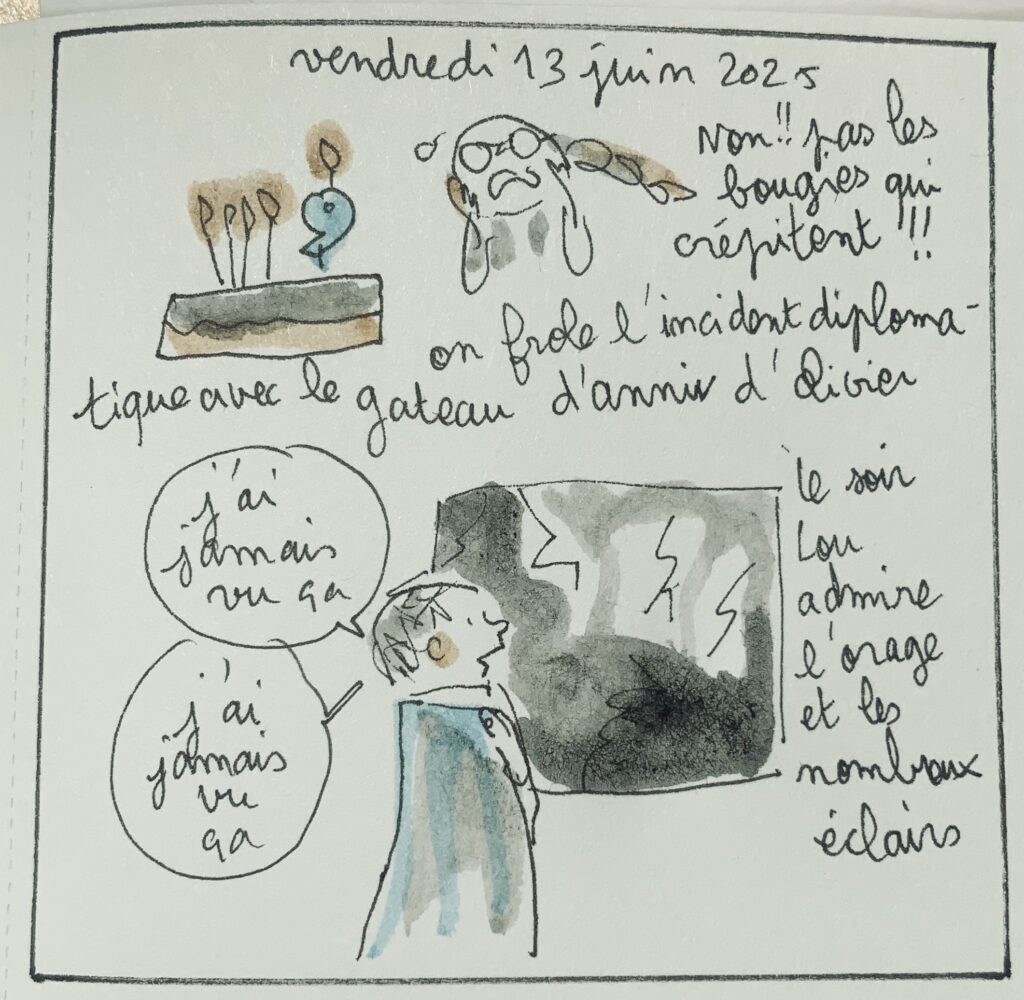 vendredi 13 juin 2025
Non!! pas les
bougies qui
crépitent !!!
on frole l'incident diploma-
tique avec le gateau d'anniv d'Olivier
j'ai
jamais
vu ça
j'ai
jamais
vu
ça
le soir
Lou
admire
l'orage
et les
nombreux
éclairs